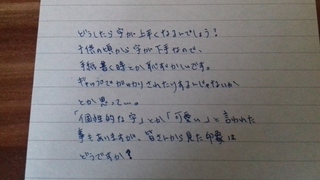 どうしたら字が上手くなるんでしょう！
子供の頃から字が下手なので、
手紙書く時とか恥ずかしいです。
ギャップでガッカリされたりするんじゃないか
とか思って…。
「個性的な字」とか「可愛い」と言われた
事もありますが、皆さんから見た印象は
どうですか？